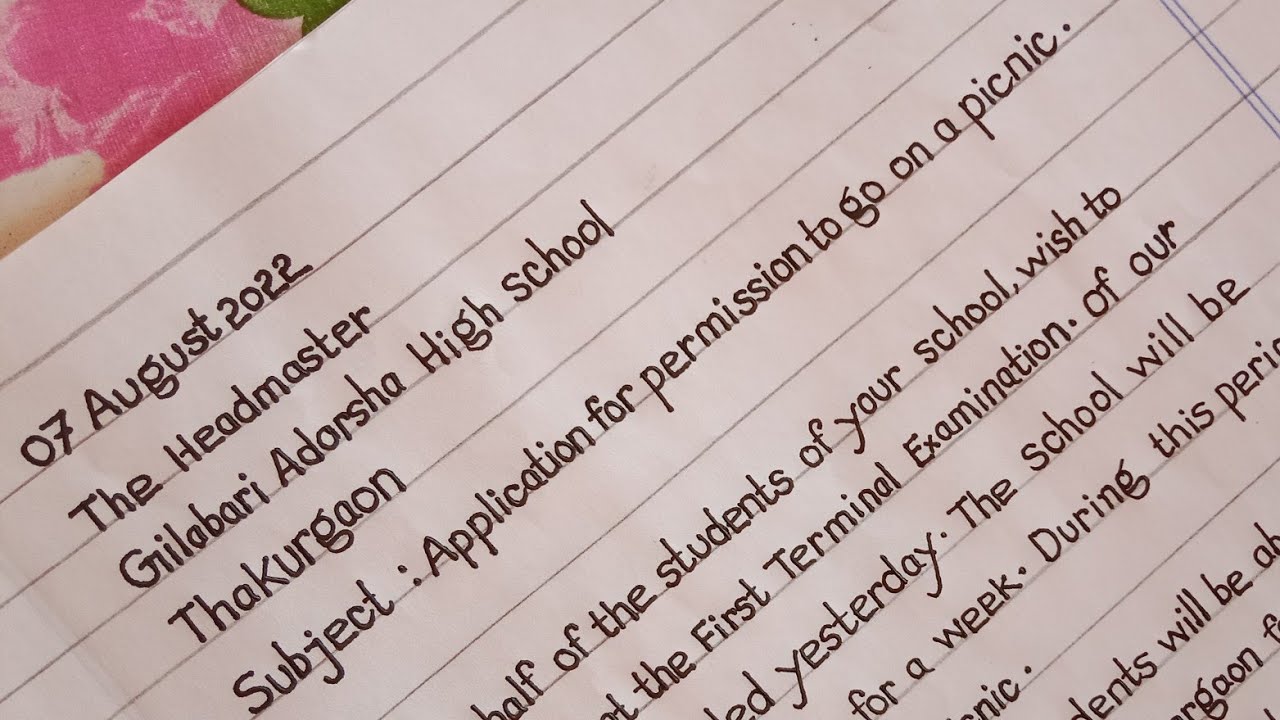 07 August 2022
The Headmaster
Gilabari Adarsha High school
Thakurgaon
Subject : Application for permission to go on a picnic.
of the students of your school, wish to
the First Terminal Examination. Of our
yesterday. The school will be
for a week. During this
will be